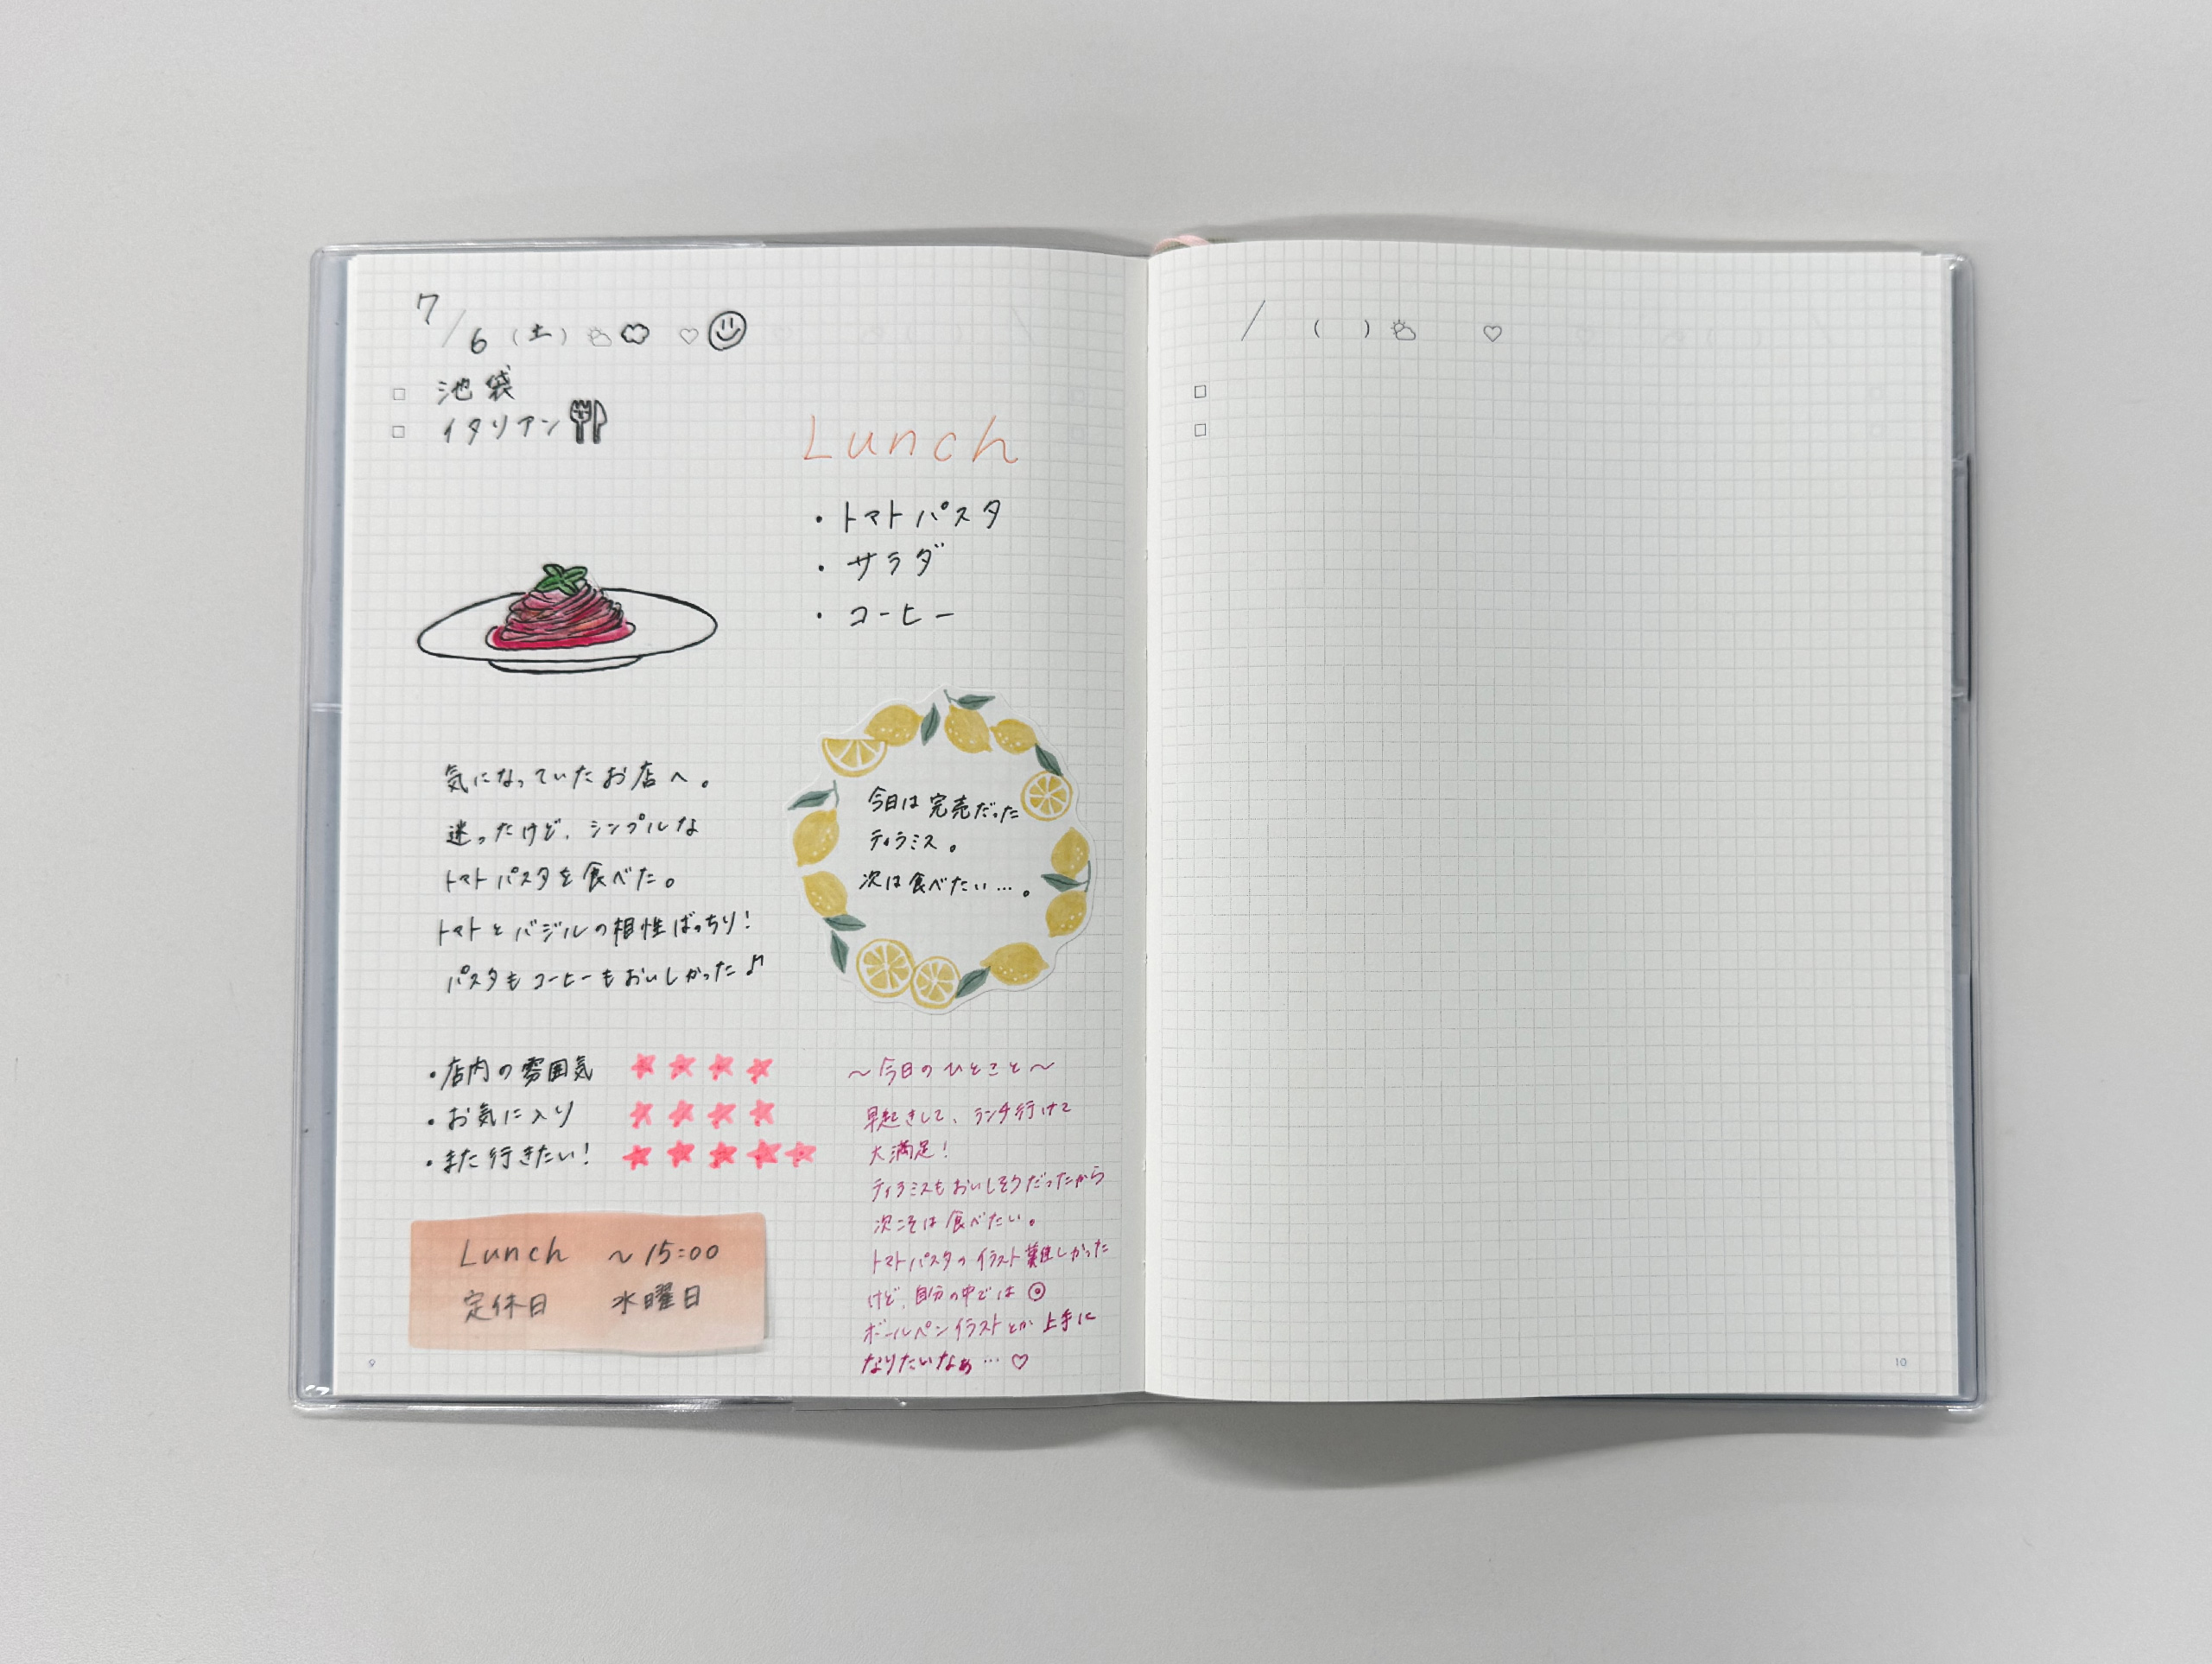 7/6(土)
池袋
イタリアン
Lunch
・トマトパスタ
・サラダ
・コーヒー
気になっていたお店へ。
迷ったけど、シンプルな
トマトパスタを食べた。
トマトとバジルの相性ばっちり!
パスタもコーヒーもおいしかった♪
今日は完売だった
ティラミス。
次は食べたい…。
・店内の雰囲気 ★★★★
・お気に入り ★★★★
・また行きたい! ★★★★★
Lunch ~15:00
定休日 水曜日
~今日のひとこと~
早起きして、ランチ行けて
大満足!
ティラミスもおいしそうだったから
次こそは食べたい。
トマトパスタのイラスト難しかった
けど、自分の中では◎
ボールペンイラストとか上手に
なりたいなぁ…♡
9
/ ( )
10